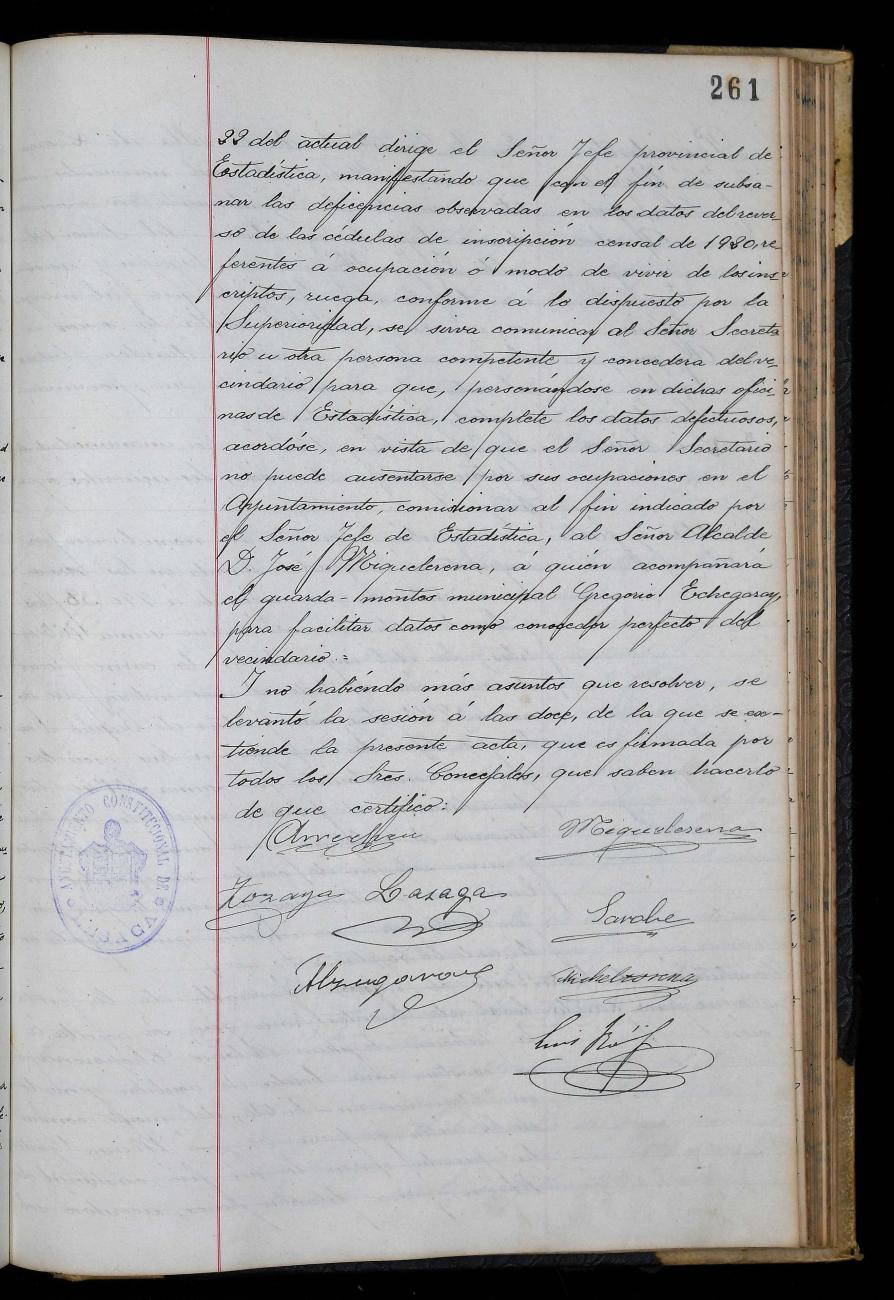 261
22 del actual dirige el Señor Jefe provincial de
Estadística, manifestando que con el fin de subsa-
nar las deficencias observadas en los datos del rever-
so de las cédulas de inscripción censal de 1920, re
ferentes á ocupación ó modo de vivir de los ins-
criptos, ruega, conforme á lo dispuesto por la
Superioridad, se sirva comunicar al Señor Secreta
rio u otra persona competente y concedora del ve-
cindario para que, personándose en dichas ofici-
nas de Estadística, complete los datos defectuosos,
acordóse, en vista de que el Señor Secretario
no puede ausentarse por sus ocupaciones en el
Ayuntamiento, comisionar al fin indicado por
el Señor Jefe de Estadística, al Señor Alcalde
D. José Miquelerena, á quién acompañará
el guarda-montes municipal Gregorio Echegaray,
para facilitar datos como conocedor perfecto del
vecindario.=
Y no habiéndo más asuntos que resolver, se
levantó la sesión á las doce, de la que se ex-
tiende la presente acta, que es firmada por
todos los Sres. Concejales, que saben hacerlo
de que certifico:
Miquelerena
Zozaya Lazaga
Sarobe
Alzugaray
Michelzorena
Luis
AYUNTAMIENTO CONSTITUCIONAL DE